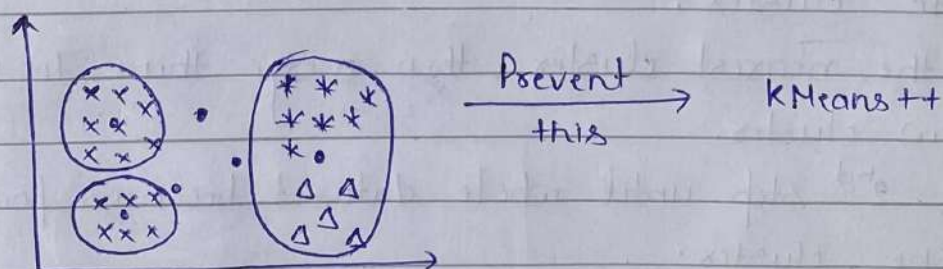 Prevent
this
KMeans++